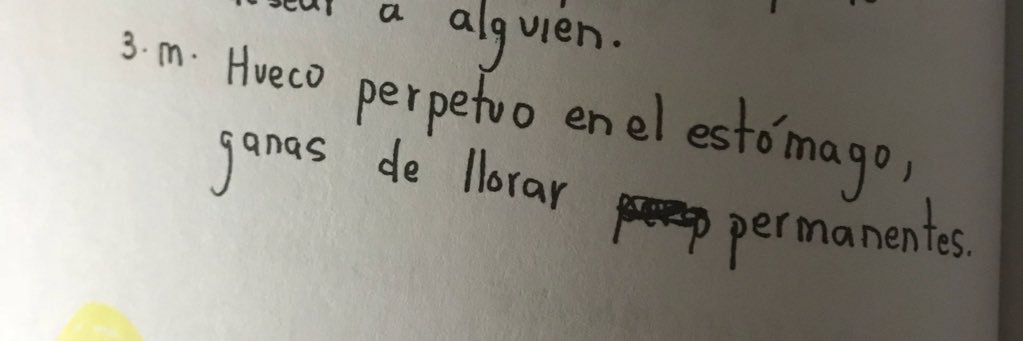 a alguien.
3. m. Hueco perpetuo en el estómago,
ganas de llorar permanentes.